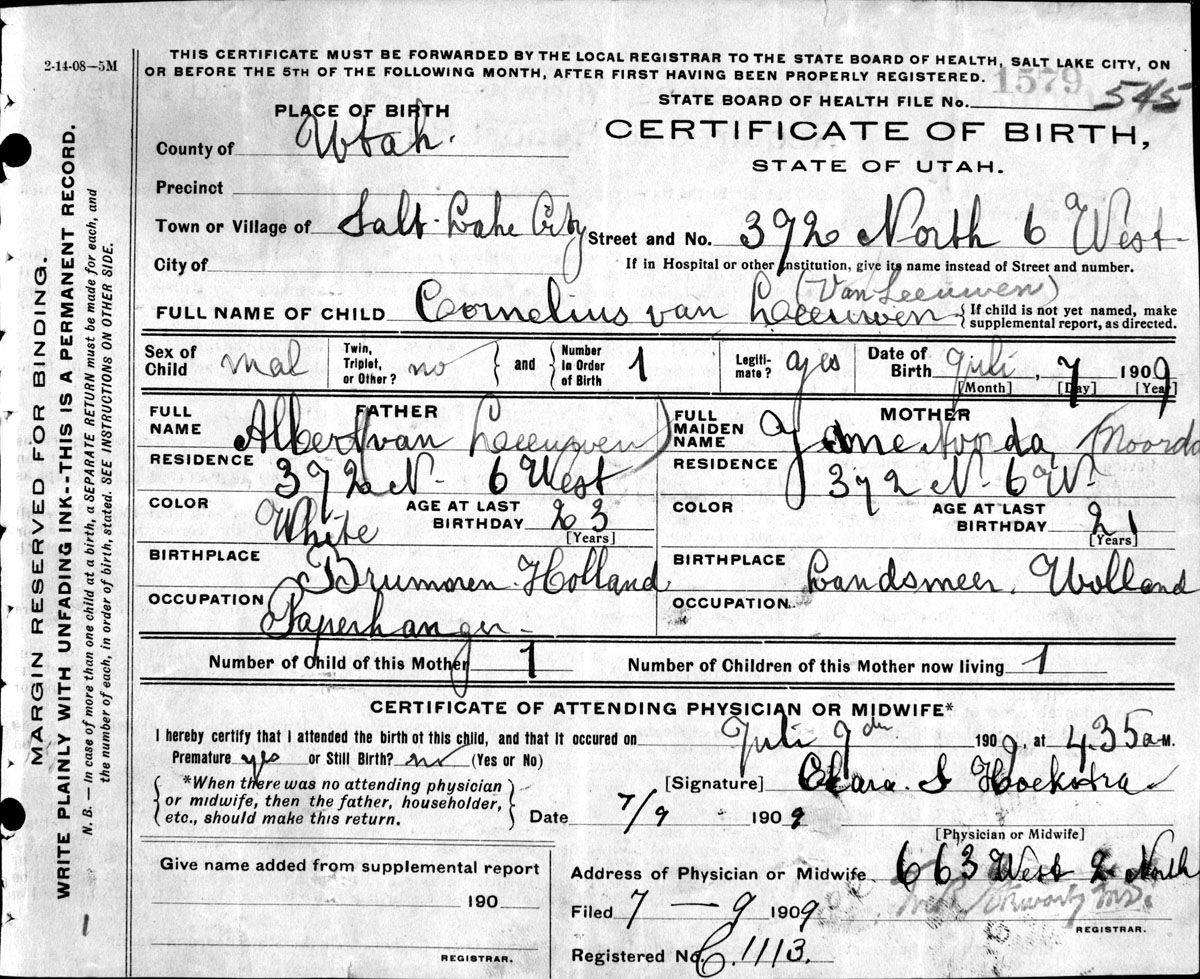 2-14-08—5M
THIS CERTIFICATE MUST BE FORWARDED BY THE LOCAL REGISTRAR TO THE STATE BOARD OF HEALTH, SALT LAKE CITY, ON
OR BEFORE THE 5TH OF THE FOLLOWING MONTH, AFTER FIRST HAVING BEEN PROPERLY REGISTERED. 1579
STATE BOARD OF HEALTH FILE No. 545
PLACE OF BIRTH
CERTIFICATE OF BIRTH,
STATE OF UTAH.
County of Utah.
Precinct
Town or Village of Salt-Lake City Street and No. 372 North 6 West
City of If in Hospital or other Institution, give its name instead of Street and number.
(Van Leeuwen)
FULL NAME OF CHILD Cornelius van Leeuwen { If child is not yet named, make
supplemental report, as directed.
Sex of Child mal Twin, Triplet, or Other? no } and { Number In Order of Birth 1 Legitimate? yes Date of Birth Juli, 7 1909
[Month] [Day] [Year]
FATHER
FULL NAME Albert van Leeuwen)
RESIDENCE 372 N- 6 West
COLOR White AGE AT LAST BIRTHDAY 23
[Years]
BIRTHPLACE Brummen-Holland
OCCUPATION Paperhanger-
MOTHER
FULL MAIDEN NAME Norda (Noord
RESIDENCE 372 N- 6 W-
COLOR AGE AT LAST BIRTHDAY 21
[Years]
BIRTHPLACE Landsmeer. Wolland
OCCUPATION..
Number of Child of this Mother 1 Number of Children of this Mother now living 1
CERTIFICATE OF ATTENDING PHYSICIAN OR MIDWIFE*
I hereby certify that I attended the birth of this child, and that it occured on Juli 7 190 9, at 4.35 A.M.
Premature yes or Still Birth? no (Yes or No)
*When there was no attending physician
or midwife, then the father, householder,
etc., should make this return.
[Signature] Clara. S Hoekstra
Date 7/9 190 9
[Physician or Midwife]
Give name added from supplemental report
190
REGISTRAR.
Address of Physician or Midwife 663 West 2 North
Filed 7 — 9 1909
REGISTRAR.
Registered No. C.1113.
MARGIN RESERVED FOR BINDING.
WRITE PLAINLY WITH UNFADING INK--THIS IS A PERMANENT RECORD.
N. B. — In case of more than one child at a birth, a SEPARATE RETURN must be made for each, and
the number of each, in order of birth, stated. SEE INSTRUCTIONS ON OTHER SIDE.
1